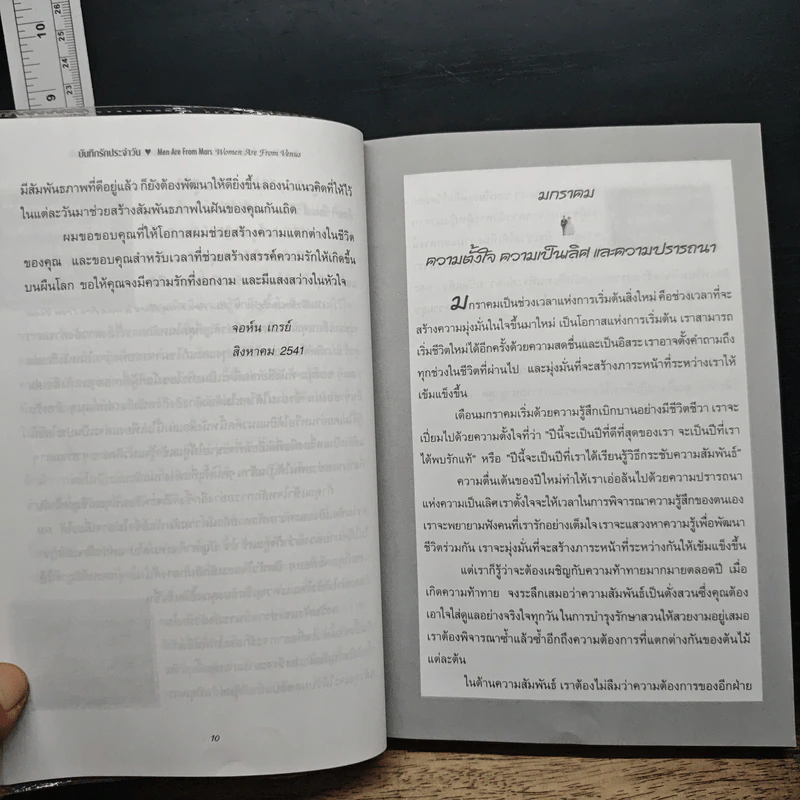 10
9
26
25
24
23
บันทึกรักประจำวัน ♥ Men Are From Mars Women Are From Venus
มีสัมพันธภาพที่ดีอยู่แล้ว ก็ยังต้องพัฒนาให้ดียิ่งขึ้น ลองนำแนวคิดที่ให้ไว้
ในแต่ละวันมาช่วยสร้างสัมพันธภาพในฝันของคุณกันเถิด
ผมขอขอบคุณที่ให้โอกาสผมช่วยสร้างความแตกต่างในชีวิต
ของคุณ และขอบคุณสำหรับเวลาที่ช่วยสร้างสรรค์ความรักให้เกิดขึ้น
บนผืนโลก ขอให้คุณจงมีความรักที่งอกงาม และมีแสงสว่างในหัวใจ
จอห์น เกรย์
สิงหาคม 2541
10
มกราคม
ความตั้งใจ ความเป็นเลิศ และความปรารถนา
มกราคมเป็นช่วงเวลาแห่งการเริ่มต้นสิ่งใหม่ คือช่วงเวลาที่จะ
สร้างความมุ่งมั่นในใจขึ้นมาใหม่ เป็นโอกาสแห่งการเริ่มต้น เราสามารถ
เริ่มชีวิตใหม่ได้อีกครั้งด้วยความสดชื่นและเป็นอิสระ เราอาจตั้งคำถามถึง
ทุกช่วงในชีวิตที่ผ่านไป และมุ่งมั่นที่จะสร้างภาระหน้าที่ระหว่างเราให้
เข้มแข็งขึ้น
เดือนมกราคมเริ่มด้วยความรู้สึกเบิกบานอย่างมีชีวิตชีวา เราจะ
เปี่ยมไปด้วยความตั้งใจที่ว่า "ปีนี้จะเป็นปีที่ดีที่สุดของเรา จะเป็นปีที่เรา
ได้พบรักแท้" หรือ "ปีนี้จะเป็นปีที่เราได้เรียนรู้วิธีกระชับความสัมพันธ์"
ความตื่นเต้นของปีใหม่ทำให้เราเอ่อล้นไปด้วยความปรารถนา
แห่งความเป็นเลิศ เราตั้งใจจะให้เวลาในการพิจารณาความรู้สึกของตนเอง
เราจะพยายามฟังคนที่เรารักอย่างเต็มใจ เราจะแสวงหาความรู้เพื่อพัฒนา
ชีวิตร่วมกัน เราจะมุ่งมั่นที่จะสร้างภาระหน้าที่ระหว่างกันให้เข้มแข็งขึ้น
แต่เราก็รู้ว่าจะต้องเผชิญกับความท้าทายมากมายตลอดปี เมื่อ
เกิดความท้าทาย จงระลึกเสมอว่าความสัมพันธ์เป็นดั่งสวนซึ่งคุณต้อง
เอาใจใส่ดูแลอย่างจริงใจทุกวัน ในการบำรุงรักษาสวนให้สวยงามอยู่เสมอ
เราต้องพิจารณาซ้ำแล้วซ้ำอีกถึงความต้องการที่แตกต่างกันของต้นไม้
แต่ละต้น
ในด้านความสัมพันธ์ เราต้องไม่ลืมว่าความต้องการของอีกฝ่าย